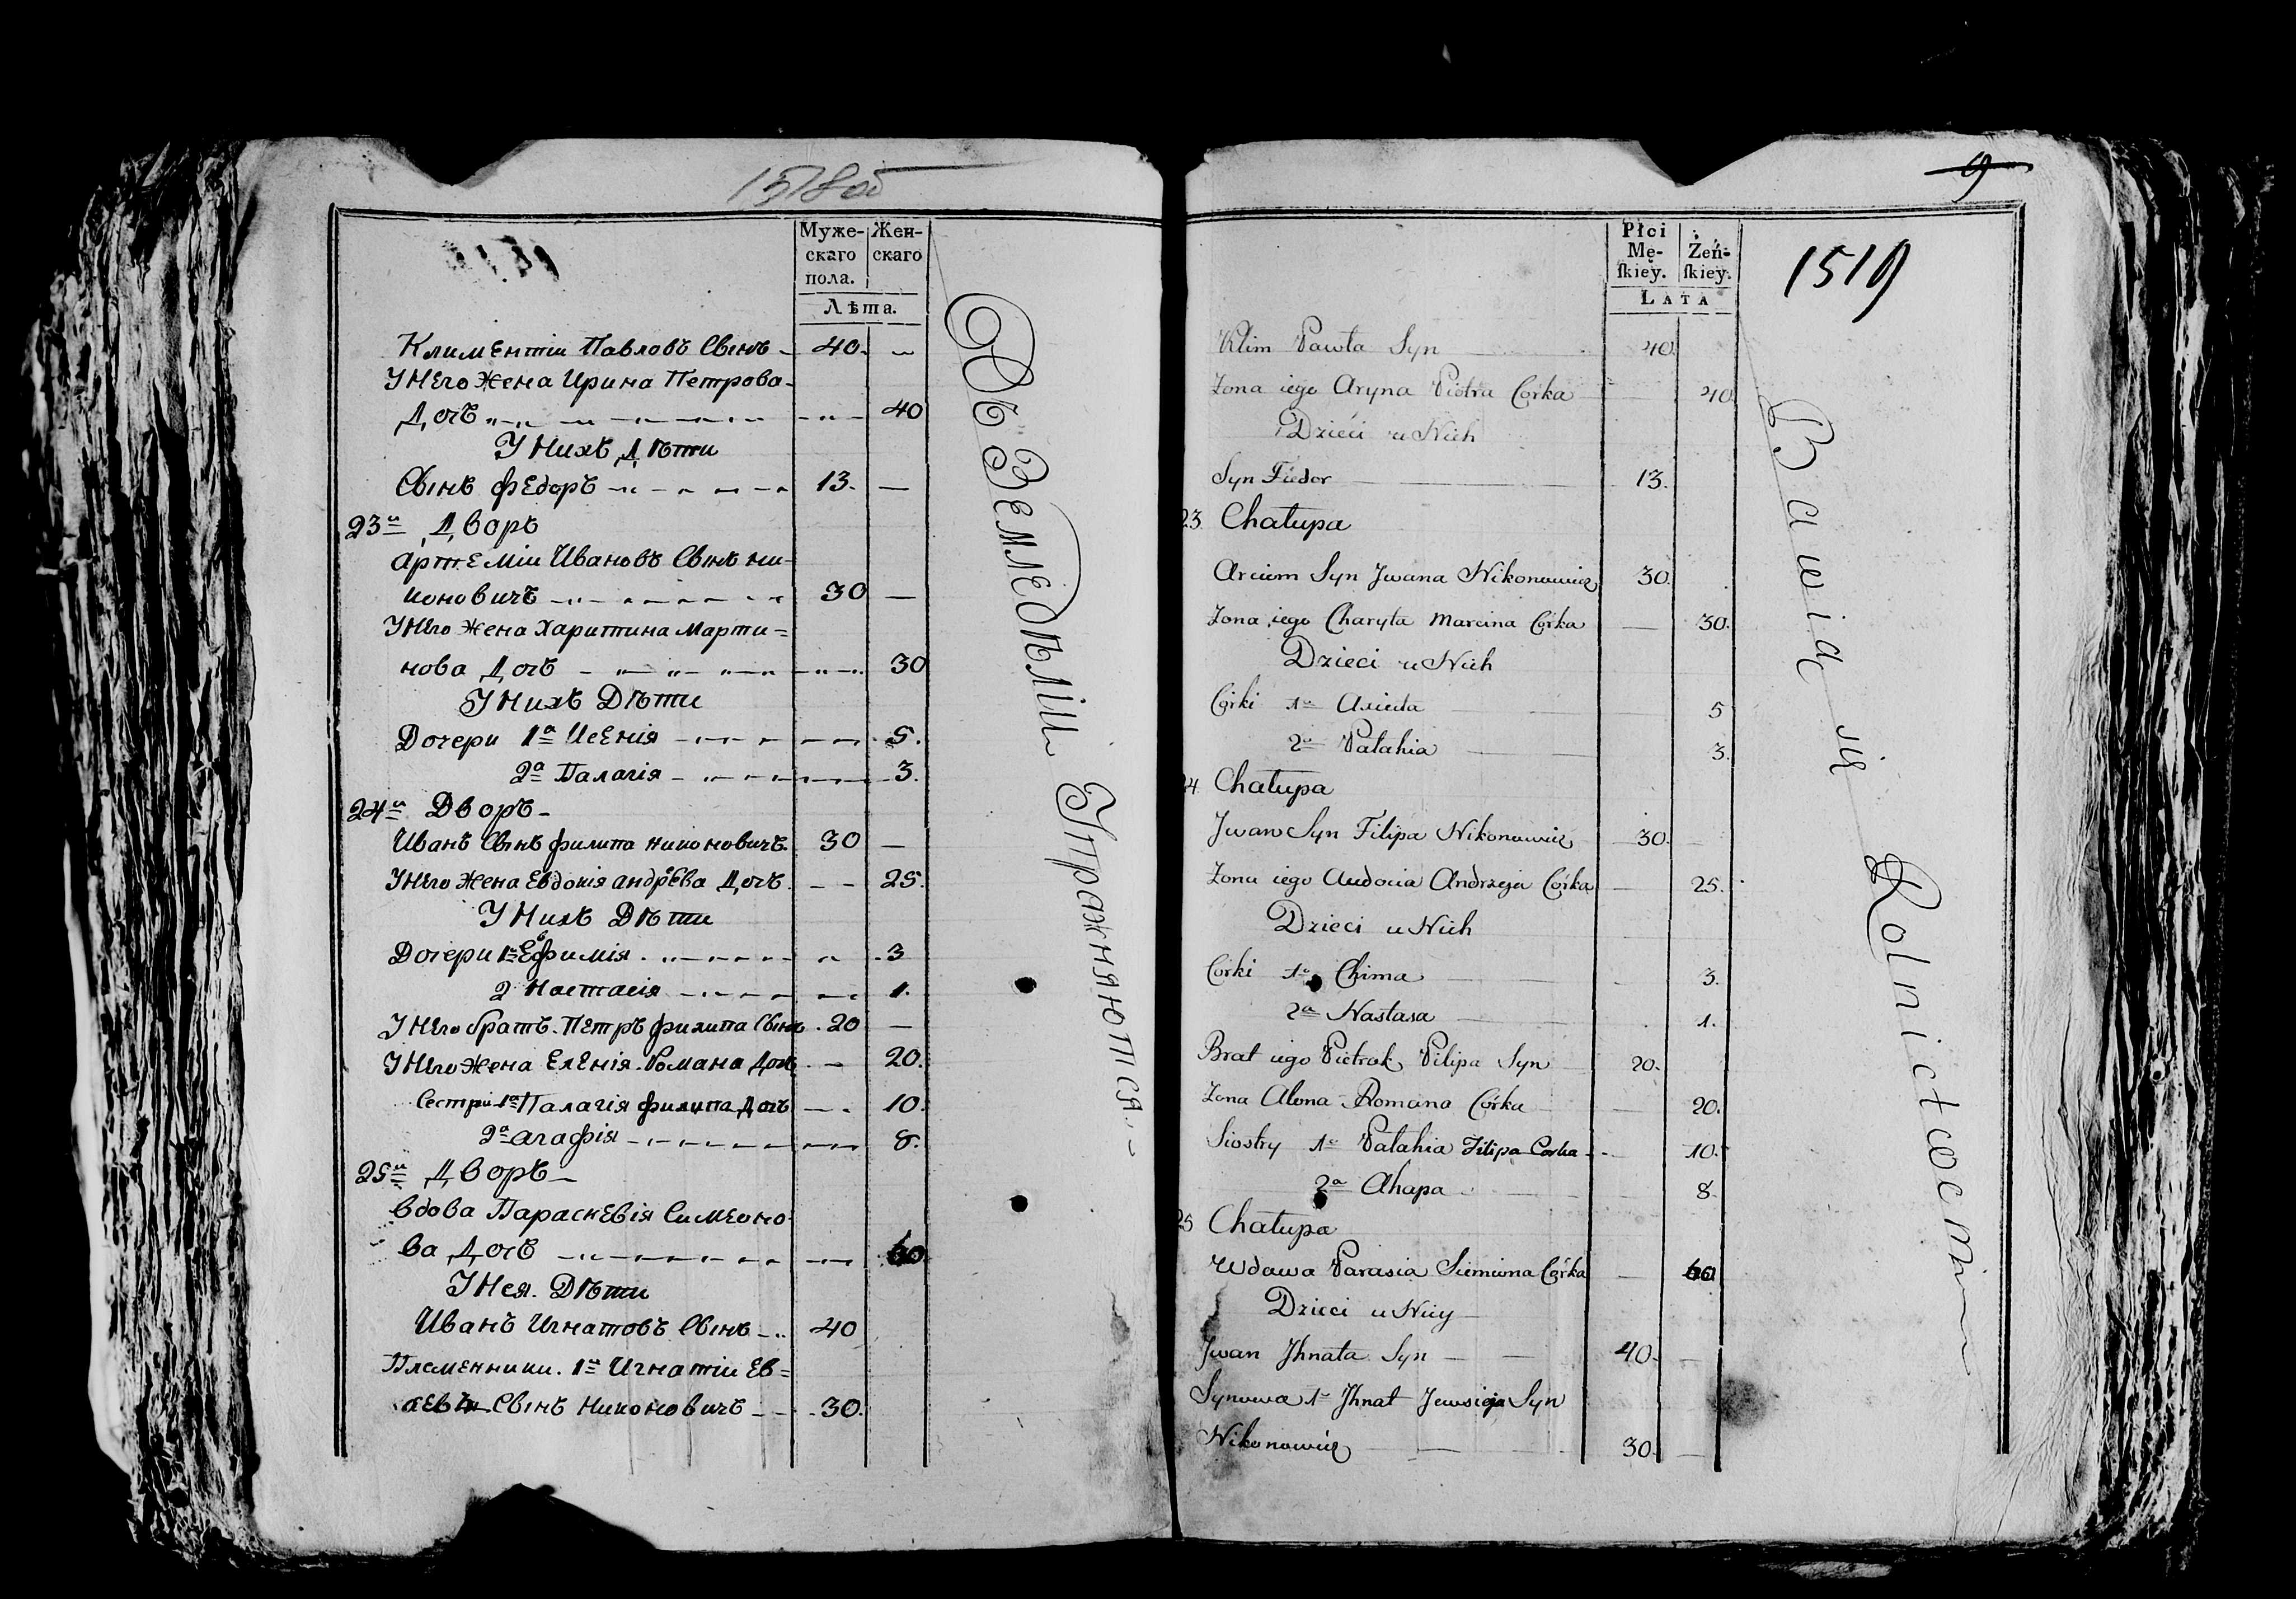 1518 об
Муже-
скаго
пола.
Жен-
скаго
Лѣта.
Климентіи Павловъ Сынъ 40.
У Него Жена Ирина Петрова
Дочь 40
У Нихъ Дѣти
Сынъ Федоръ 13. —
23й Дворъ
Артемій Ивановъ Сынъ Ни-
коновичъ 30 —
У Него Жена Харитина Марти=
нова Дочь 30
У Нихъ Дѣти
Дочери 1а 5.
2а Палагія 3.
24й Дворъ
Иванъ Сынъ Филипа Никоновичъ 30 —
У Него Жена Евдокія Андрѣева Дочь 25.
У Нихъ Дѣти
Дочери 1я Ефимія 3
2 Настасія 1.
У Него братъ Петръ Филипа Сынъ 20 —
У Него Жена Еленія Романа Дочь 20.
Сестри 1а Палагія Филипа Дочь 10.
2а Агафія 8.
25й Дворъ
Вдова Параскевія Симеоно
ва Дочь 60.
У Нея Дѣти
Иванъ Игнатовъ Сынъ 40
Племенники. 1й Игнатіи Ев=
Сынъ Никоновичъ 30.
Земледѣліи Упражняются
9
1519
Płci
Mę-
ſkiey.
Żeń-
ſkiey.
LATA
Klim Pawła Syn 40.
Żona iego Aryna Piotra Córka 40.
Dzieci u Nich
Syn Fiedor 13.
23. Chałupa
Arciem Syn Jwana Nikonowicz 30.
Żona iego Charyta Marcina Córka 30.
Dzieci u Nich
Córki 1a 5
2a Pałahia 3.
24. Chałupa
Jwan Syn Filipa Nikonowicz 30.
Żona iego Audocia Andrzeja Córka 25.
Dzieci u Nich
Córki 1a Chima 3.
2a Nastasa 1.
Brat iego Pietrok Pilipa Syn 20.
Żona Alona Romana Córka 20.
Siostry 1a Pałahia Filipa Corka 10.
2a Ahapa 8.
25 Chałupa
Wdowa Parasia Siemiona Córka 60
Dzieci u Niey
Jwan Jhnata Syn 40.
Synowa 1y Jhnat Jewsieja Syn
Nikonowicz 30.
Bawią się Rolnictwem